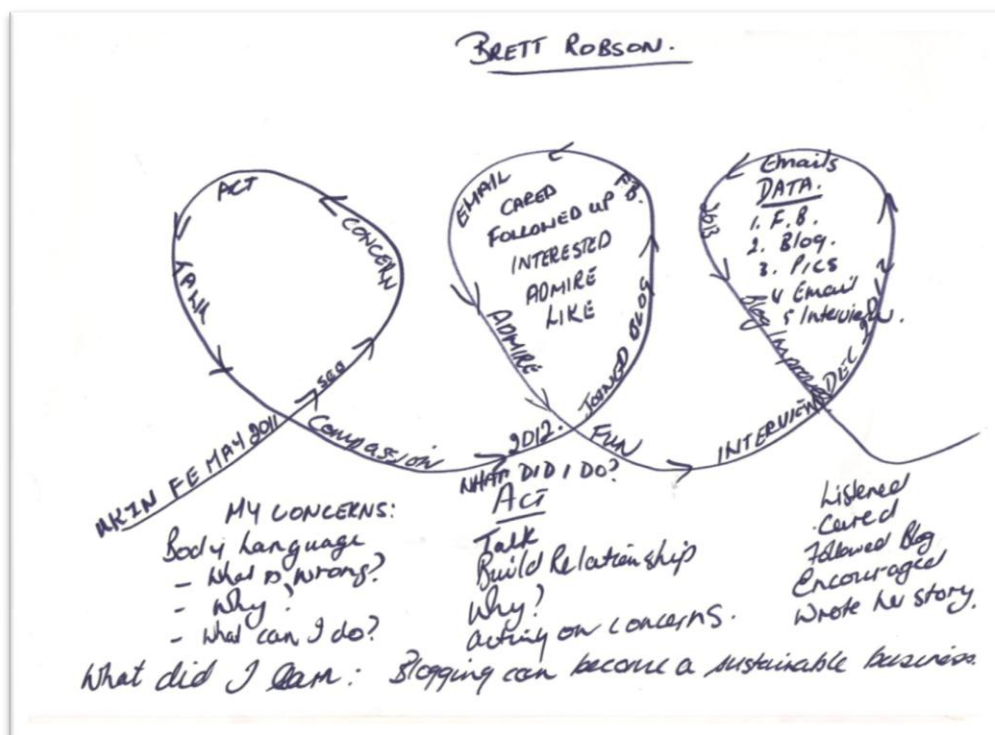 BRETT ROBSON.
ACT
CONCERN
TALK
SEO
MAY 2011
COMPASSION
EMAIL
F.B.
CARED
FOLLOWED UP
INTERESTED
ADMIRE
LIKE
ADMIRE
JOINED BLOG
2012.
FUN
Emails
DATA.
1. F.B.
2. Blog.
3. PICS
4 Email
5 Interview.
2013
Blog
INTERVIEW
DEC
MY CONCERNS:
Body Language
- What is wrong?
- Why?
- What can I do?
WHAT DID I DO?
ACT
Talk
Build Relationship
Why?
acting on concerns.
Listened
Cared
Followed Blog
Encouraged
Wrote her story.
What did I learn: Blogging can become a sustainable business.